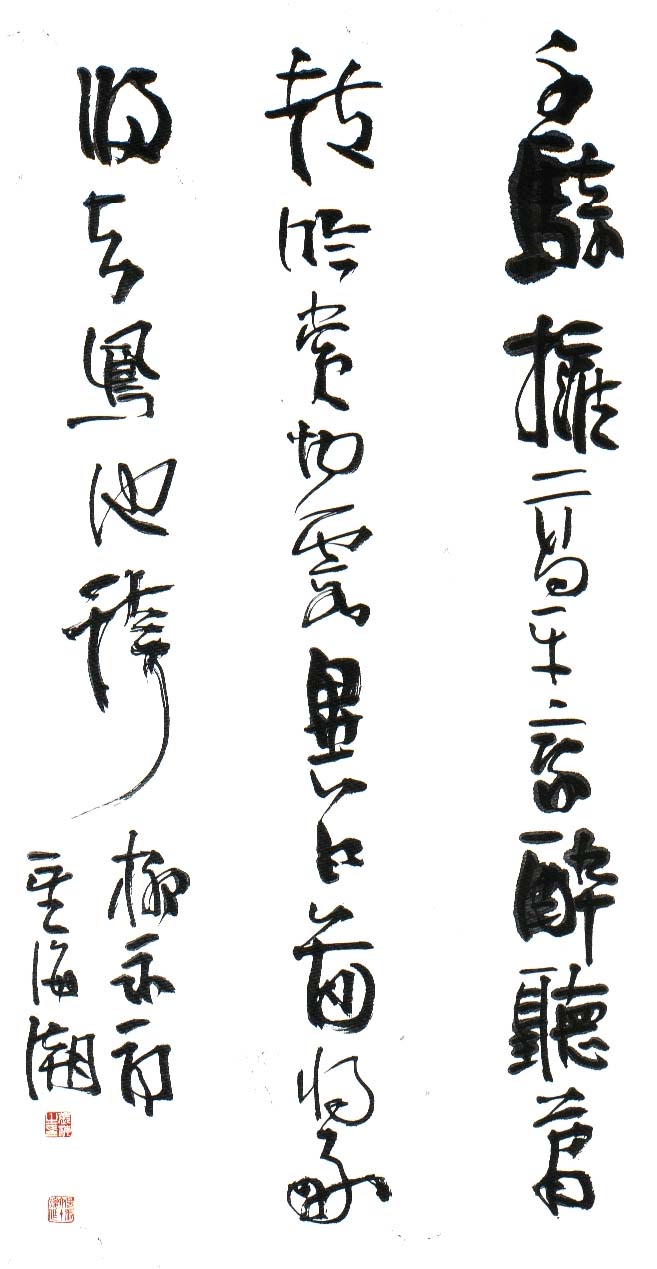 千騎擁高牙乘醉聽簫
鼓吟賞烟霞異日圖將好景
歸去鳳池誇
柳永詞
望海潮